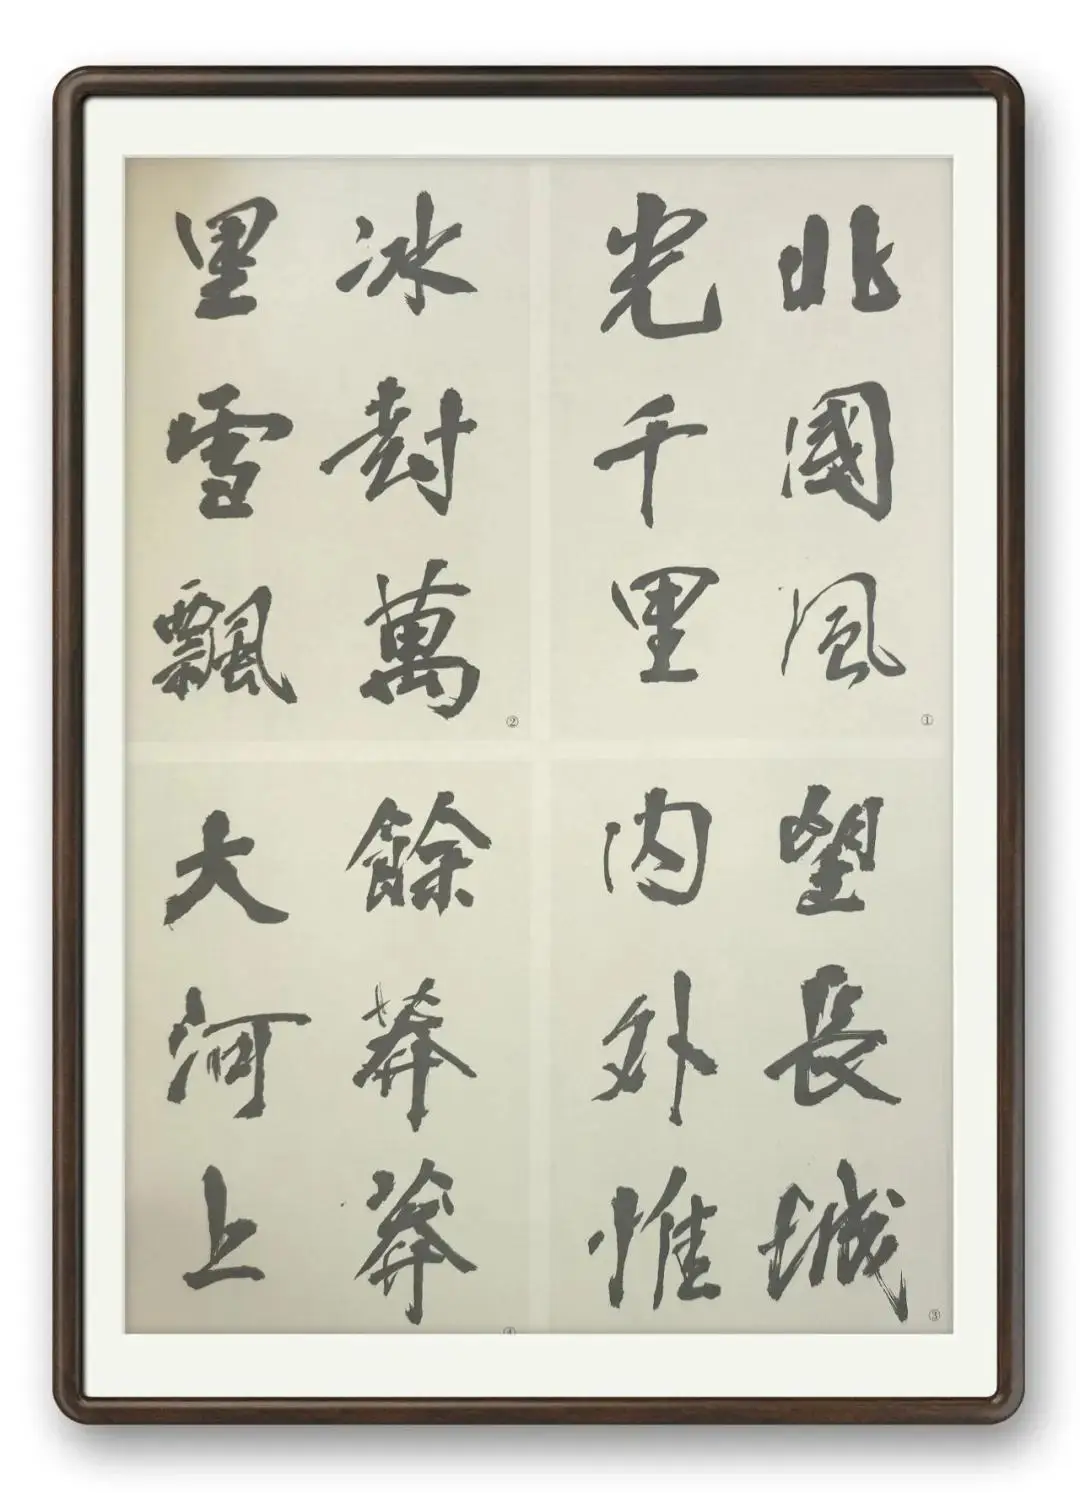 北國風
光千里
①
冰封萬
里雪飄
②
望長城
内外惟
③
餘莽莽
大河上
④